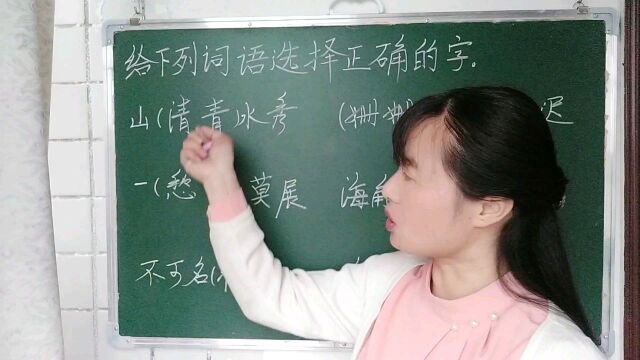 给下列词语选择正确的字.
山(清 青)水秀 ( 迟
一(愁 莫展 海角
不可名(